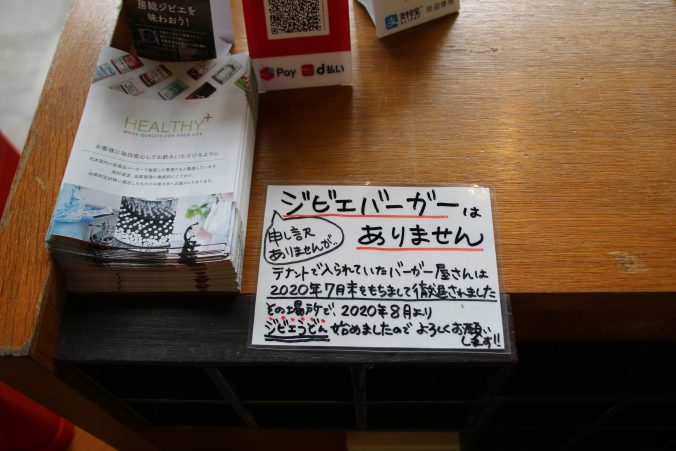 房総ジビエを
味わおう!
Pay
d払い
支付宝
ALIPAY
欢迎使用
HEALTHY+
MORE QUALITY FOR YOUR LIFE
お客様に毎日安心してお飲みいただけるように
ジビエバーガーは
ありません
申し訳
ありませんが..
テナントで入られていたバーガー屋さんは
2020年7月末をもちまして撤退されました
その場所で、2020年8月より
ジビエうどん 始めましたので よろしくお願い
します!!